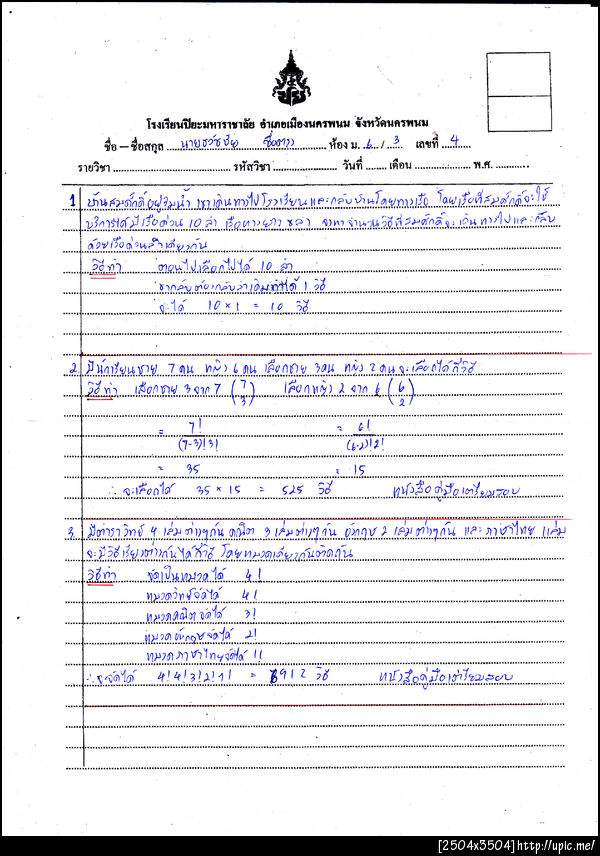 โรงเรียนปิยะมหาราชาลัย อำเภอเมืองนครพนม จังหวัดนครพนม
ชื่อ – ชื่อสกุล นายธวัชชัย ชื่อตาวา ห้อง ม. 6 / 3 เลขที่ 4
รายวิชา รหัสวิชา วันที่ เดือน พ.ศ.
1 บ้านสมศักดิ์อยู่ริมน้ำ เขาเดินทางไปโรงเรียนและกลับบ้านโดยทางเรือ โดยเรือที่สมศักดิ์จะใช้
บริการได้มีเรือด่วน 10 ลำ เรือหางยาว จำนวนวิธีที่สมศักดิ์จะเดินทางไปและกลับ
ด้วยเรือด่วนลำเดียวกัน
วิธีทำ ตอนไปเลือกไปได้ 10 ลำ
ขากลับต้องกลับลำเดิมทำได้ 1 วิธี
จะได้ 10 × 1 = 10 วิธี
2. มีนักเรียนชาย 7 คน หญิง 6 คน เลือกชาย 3 คน หญิง 2 คน จะเลือกได้กี่วิธี
วิธีทำ เลือกชาย 3 จาก 7 (7 3) เลือกหญิง 2 จาก 6 (6 2)
= 7!/(7-3)!3! = 6!/(6-2)!2!
= 35 = 15
∴ จะเลือกได้ 35 × 15 = 525 วิธี หนังสือคู่มือเตรียมสอบ
3. มีตำราวิทย์ 4 เล่มต่างๆกัน คณิต 3 เล่มต่างๆกัน อังกฤษ 2 เล่มต่างๆกัน และ ภาษาไทย 1 เล่ม
จะมีวิธีเรียงต่างกันได้กี่วิธี โดยหมวดเดียวกันติดกัน
วิธีทำ จัดเป็นหมวดได้ 4!
หมวดวิทย์จัดได้ 4!
หมวดคณิตจัดได้ 3!
หมวดอังกฤษจัดได้ 2!
หมวดภาษาไทยจัดได้ 1!
∴ จะจัดได้ 4! 4! 3! 2! 1! = 6912 วิธี หนังสือคู่มือเตรียมสอบ
[2504x3504]http://upic.me/